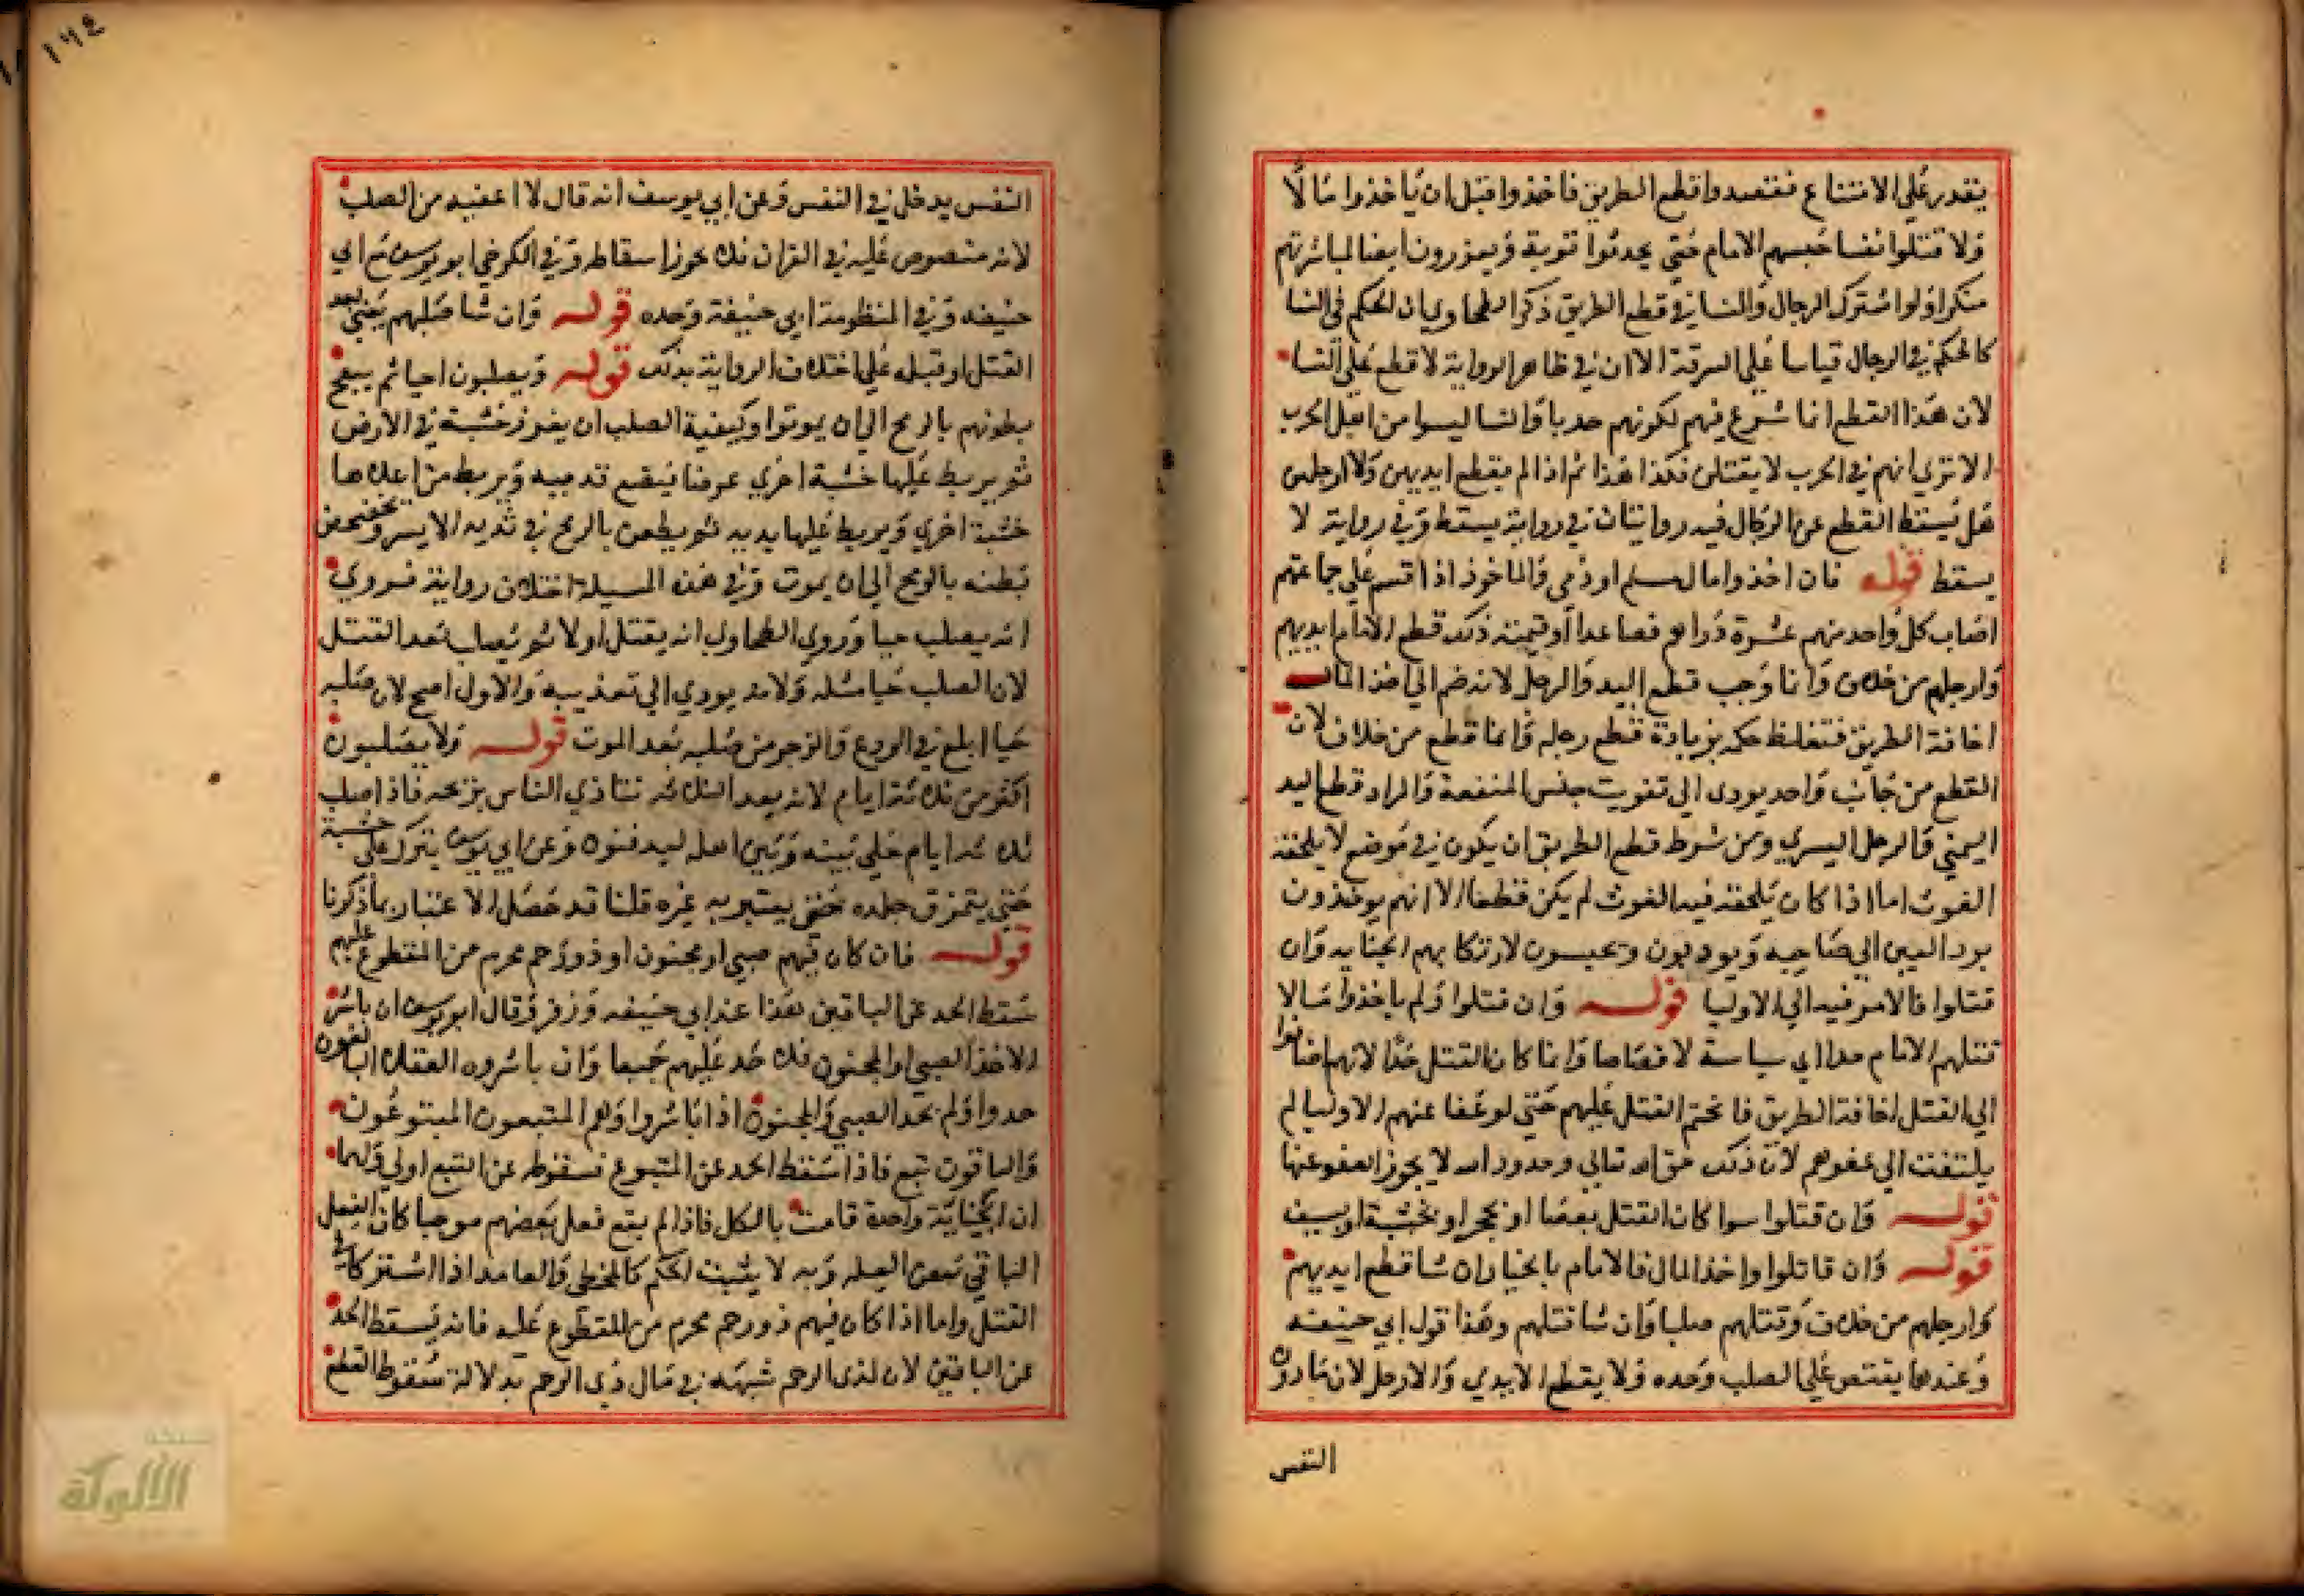 يقدر على الامتناع فقصدوا قطع الطريق فاخذوا قبل ان ياخذوا مالا
ولا قتلوا نفسا حبسهم الامام حتى يحدثوا توبة ويعزرون ايضا لمباشرتهم
منكرا ولو اشترك الرجال والنسا في قطع الطريق ذكر الطحاوي ان الحكم في النسا
كالحكم في الرجال قياسا على السرقة الا ان في ظاهر الرواية لا قطع على النسا
لان هذا القطع انما شرع فيهم لكونهم حربا والنسا ليسوا من اهل الحرب
الا تري انهم في الحرب لا يقتلن فكذا هذا ثم اذا لم يقطع ايديهن ولا ارجلهن
هل يسقط القطع عن الرجال فيه روايتان في رواية يسقط وفي رواية لا
يسقط قوله فان اخذوا مال مسلم او ذمي والماخوذ اذا قسم على جماعتهم
اصاب كل واحد منهم عشرة دراهم فصاعدا او قيمته ذلك قطع الامام ايديهم
وارجلهم من خلاف وانما وجب قطع اليد والرجل لانه ضم الي اخذ المال
اخافة الطريق فتغلظ حكمه بزيادة قطع رجله وانما قطع من خلاف لان
القطع من جانب واحد يودي الي تفويت جنس المنفعة والمراد قطع اليد
اليمني والرجل اليسري ومن شرط قطع الطريق ان يكون في موضع لا يلحقه
الغوث اما اذا كان يلحقه فيه الغوث لم يكن قطعا الا انهم يوخذون
برد العين الي صاحبه ويودبون ويحبسون لارتكابهم الجنايه وان
قتلوا فالامر فيه الي الاوليا قوله وان قتلوا ولم ياخذوا مالا
قتلهم الامام حدا اي سياسة لا قصاصا وانما كان القتل حدا لانهم اضافوا
الي القتل اخافة الطريق فانحتم القتل عليهم حتى لو عفا عنهم الاوليا لم
يلتفت الي عفوهم لان ذلك حق الله تعالي وحدود الله لا يجوز العفو عنها
قوله وان قتلوا سوا كان القتل بعصا او بحجر او بخشبة او بسيف
قوله وان قاتلوا واخذ المال فالامام بالخيار ان شا قطع ايديهم
وارجلهم من خلاف وقتلهم صلبا وان شا قتلهم وهذا قول ابي حنيفه
وعندهما يقتصر على الصلب وحده ولا يقطع الايدي والارجل لان ما دون
النفس
١٦٤
النفس يدخل في النفس وعن ابي يوسف انه قال لا اعفيه من الصلب
لانه منصوص عليه في القران فلا يجوز اسقاطه وفي الكرخي ابو يوسف مع ابي
حنيفه وفي المنظومة ابي حنيفة وحده قوله وان شا صلبهم يعني بعد
القتل او قبله على اختلاف الرواية بذلك قوله ويصلبون احيا ثم يبعج
بطونهم بالرمح الي ان يموتوا وكيفية الصلب ان يغرز خشبة في الارض
ثم يربط عليها خشبة اخري عرضا فيضع قدميه ويربط من اعلاها
خشبة اخري ويربط عليها يديه ثم يطعن بالرمح في ثديه الايسر ويخضخض
بطنه بالرمح الي ان يموت وفي هذه المسيلة اختلاف رواية فروي
انه يصلب حيا وروي الطحاوي انه يقتل اولا ثم يصلب بعد القتل
لان الصلب حيا مثله ولانه يودي الي تعذيبه والاول اصح لان صلبه
حيا ابلغ في الردع والزجر من صلبه بعد الموت قوله ولا يصلبون
اكثر من ثلاثة ايام لانه بعد الثلاثه تتاذي الناس بريحه فاذا صلب
ثلاثة ايام خلي بينه وبين اهله ليدفنوه وعن ابي يوسف يترك على خشبة
حتي يتمزق جلده حتي يعتبر به غيره قلنا قد حصل الاعتبار بما ذكرنا
قوله فان كان فيهم صبي او مجنون او ذو رحم محرم من المقطوع عليهم
سقط الحد عن الباقين هذا عند ابي حنيفه وزفر وقال ابو يوسف ان باشر
الاخذ الصبي او المجنون فلا حد عليهم جميعا وان باشروه العقلا البالغون
حدوا ولم يحد الصبي والمجنون اذا باشروا وهم المتبعون المبتوعون
والباقون تبع فاذا سقط الحد عن المتبوع فسقوطه عن التبع اولي ولهما
ان الجناية واحدة قامت بالكل فاذا لم يقع فعل بعضهم موجبا كان الفعل
الباقي بعض العله وبه لا يثبت الحكم كالمخطي والعامد اذا اشتركا في
القتل واما اذا كان فيهم ذو رحم محرم من المقطوع عليه فانه يسقط الحد
عن الباقين لان لذي الرحم شبهه في مال ذي الرحم بدلالة سقوط القطع
شبكة
الألوكة